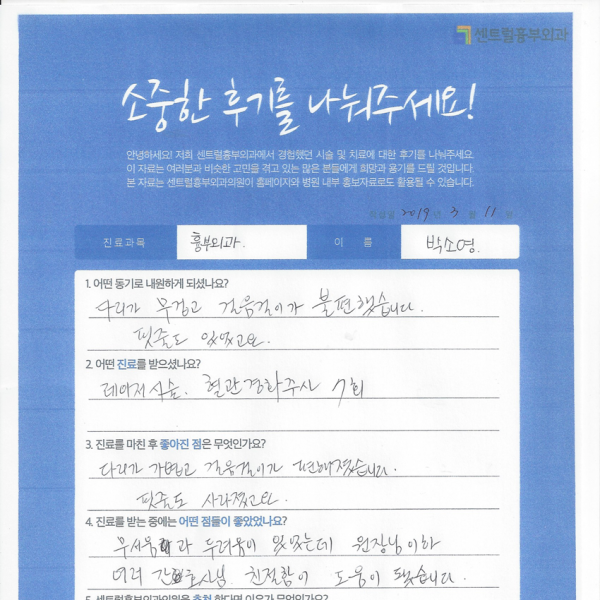 센트럴흉부외과
소중한 후기를 나눠주세요!
안녕하세요! 저희 센트럴흉부외과에서 경험했던 시술 및 치료에 대한 후기를 나눠주세요.
이 자료는 여러분과 비슷한 고민을 겪고 있는 많은 분들에게 희망과 용기를 드릴 것입니다.
본 자료는 센트럴흉부외과의원이 홈페이지와 병원 내부 홍보자료로도 활용될 수 있습니다.
2019년 3월 11일
진료과목 흉부외과. 이 름 박소영.
1. 어떤 동기로 내원하게 되셨나요?
다리가 무겁고 걸음걸이가 불편했습니다.
핏줄도 있었고요.
2. 어떤 진료를 받으셨나요?
레이저시술. 혈관경화주사 7회
3. 진료를 마친 후 좋아진 점은 무엇인가요?
다리가 가볍고 걸음걸이가 편해졌습니다.
핏줄도 사라졌고요.
4. 진료를 받는 중에는 어떤 점들이 좋았었나요?
무서움과 두려움이 있었는데 원장님이하
여러 간호사님. 친절함이 도움이 됐습니다.
5. 센트럴흉부외과의원을 추천 한다면 이유가 무엇인가요?